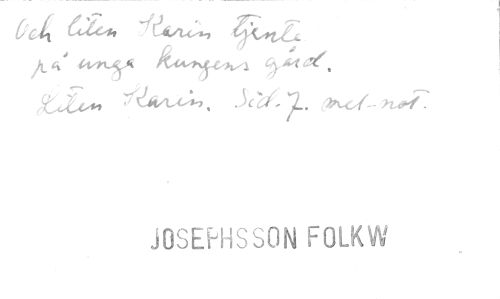 Och liten Karin tjente
på unga kungens gård.
Liten Karin. Sid. 7. mel-not.
JOSEPHSSON FOLKW